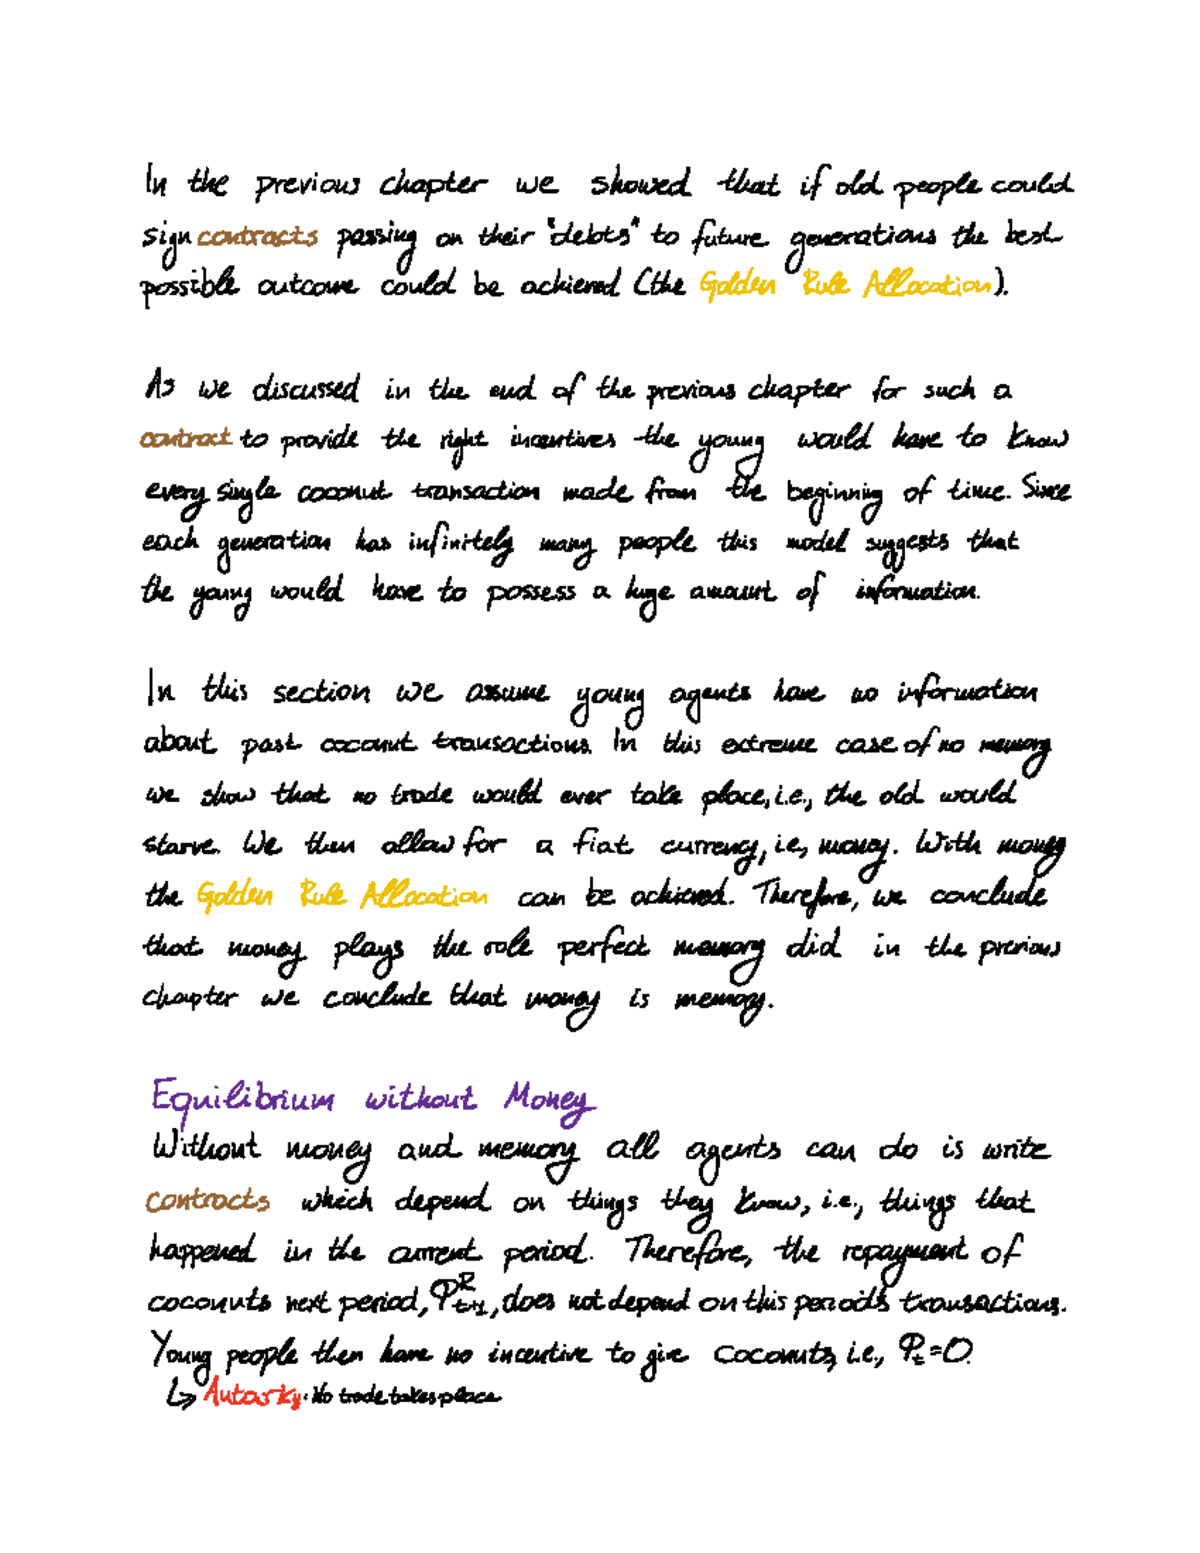 In the previous chapter we showed that if old people could
sign contracts passing on their "debts" to future generations the best
possible outcome could be achieved (the Golden Rule Allocation).
As we discussed in the end of the previous chapter for such a
contract to provide the right incentives the young would have to know
every single coconut transaction made from the beginning of time. Since
each generation has infinitely many people this model suggests that
the young would have to possess a huge amount of information.
In this section we assume young agents have no information
about past coconut transactions. In this extreme case of no memory
we show that no trade would ever take place, i.e., the old would
starve. We then allow for a fiat currency, i.e., money. With money
the Golden Rule Allocation can be achieved. Therefore, we conclude
that money plays the role perfect memory did in the previous
chapter we conclude that money is memory.
Equilibrium without Money
Without money and memory all agents can do is write
contracts which depend on things they know, i.e., things that
happened in the current period. Therefore, the repayment of
coconuts next period, φᴿₜ₊₁, does not depend on this period's transactions.
Young people then have no incentive to give coconuts, i.e., φₜ=0.
↳ Autarky: No trade takes place